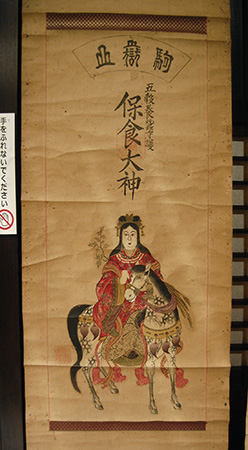 駒嶽山
五穀養蚕守護
保食大神
手をふれないでください